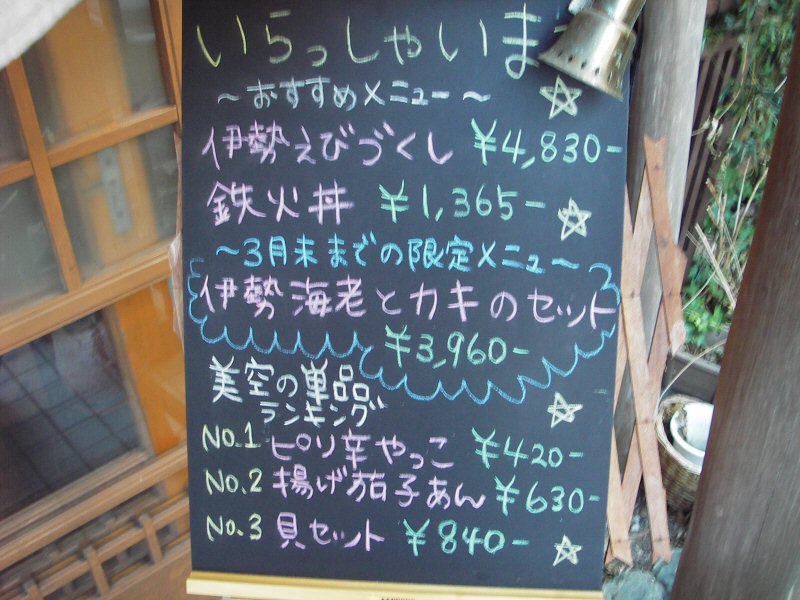 いらっしゃいま
～おすすめメニュー～
伊勢えびづくし ￥4,830-
鉄火丼 ￥1,365-
～3月末までの限定メニュー～
伊勢海老とカキのセット
￥3,960-
美空の単品
ランキング
No.1 ピリ辛やっこ ￥420-
No.2 揚げ茄子あん ￥630-
No.3 貝セット ￥840-